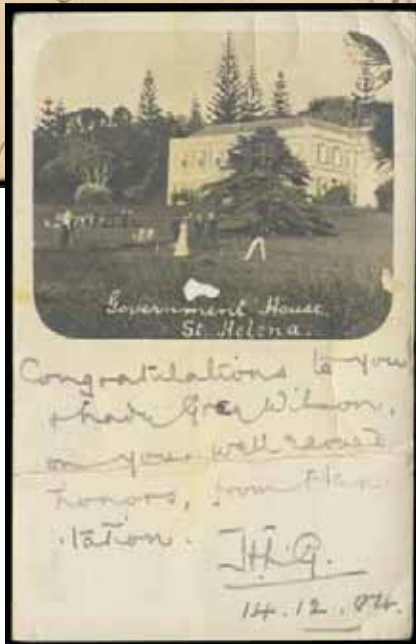 Government House.
St. Helena.
Congratulations to you
& Lady Grey Wilson,
on your well
honors, from Plan
tation.
14.12.04.